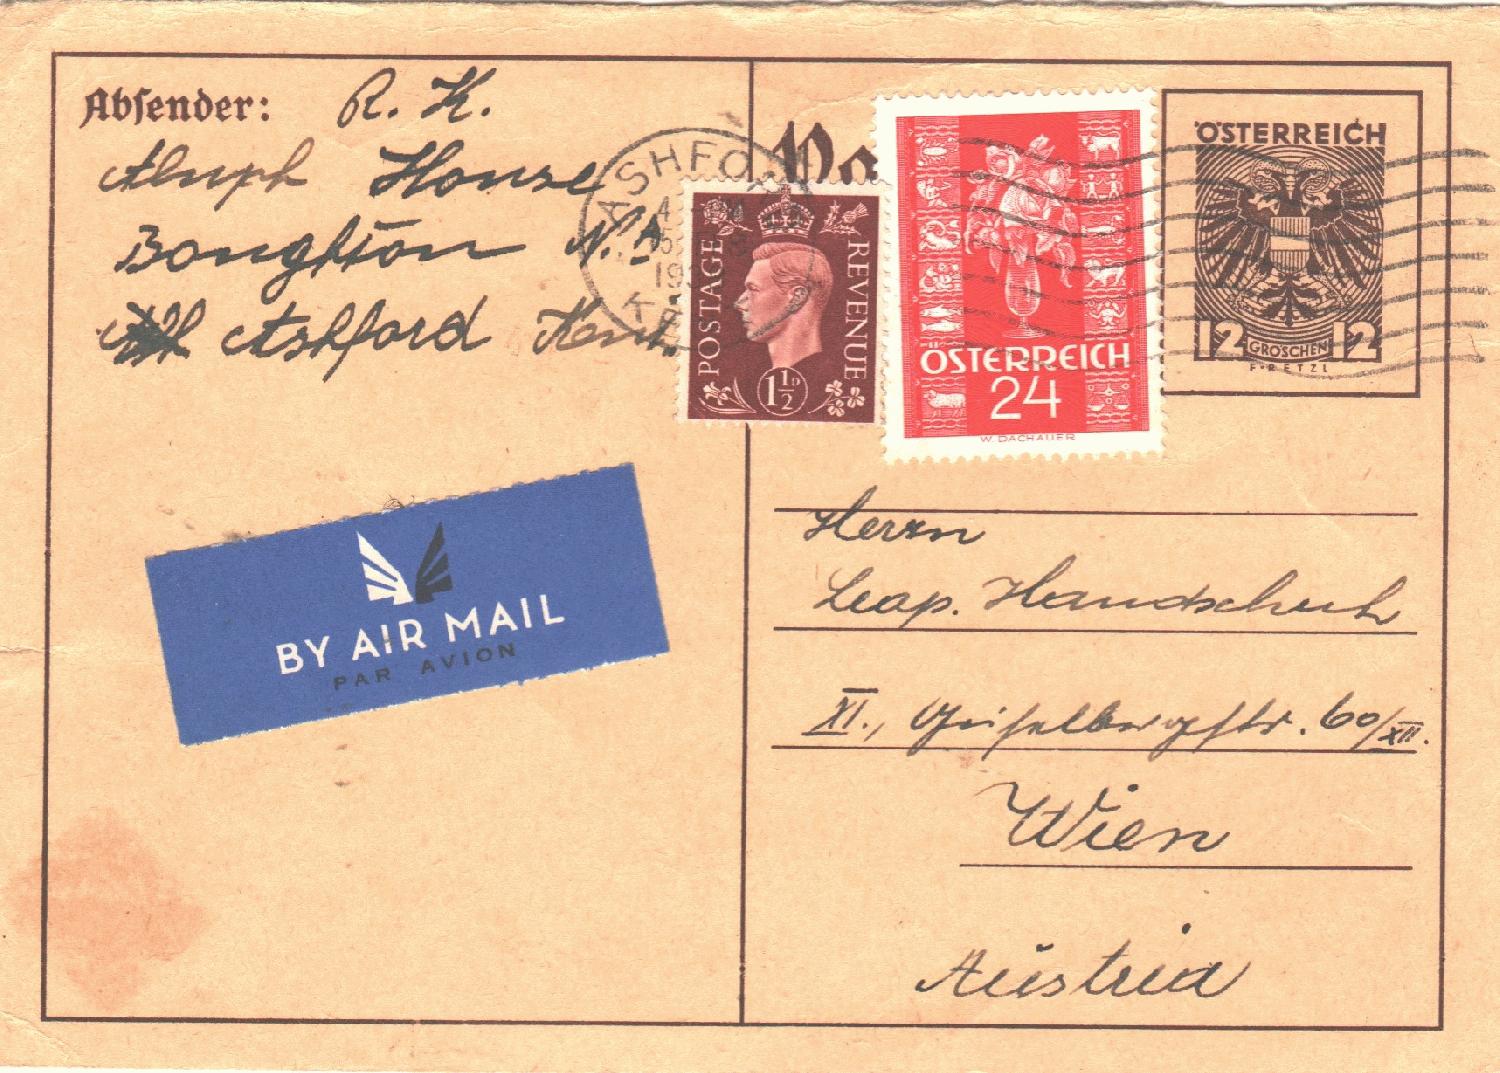 Absender: R. K.
House
Boughton
Ashford Kent.
ASHFO
KE
POSTAGE REVENUE
1½D
ÖSTERREICH
24
W. DACHAUER
ÖSTERREICH
12 GROSCHEN 12
BY AIR MAIL
PAR AVION
Herrn
Leop. Handschuh
XI., Geiselbergstr. 60/XII.
Wien
Austria